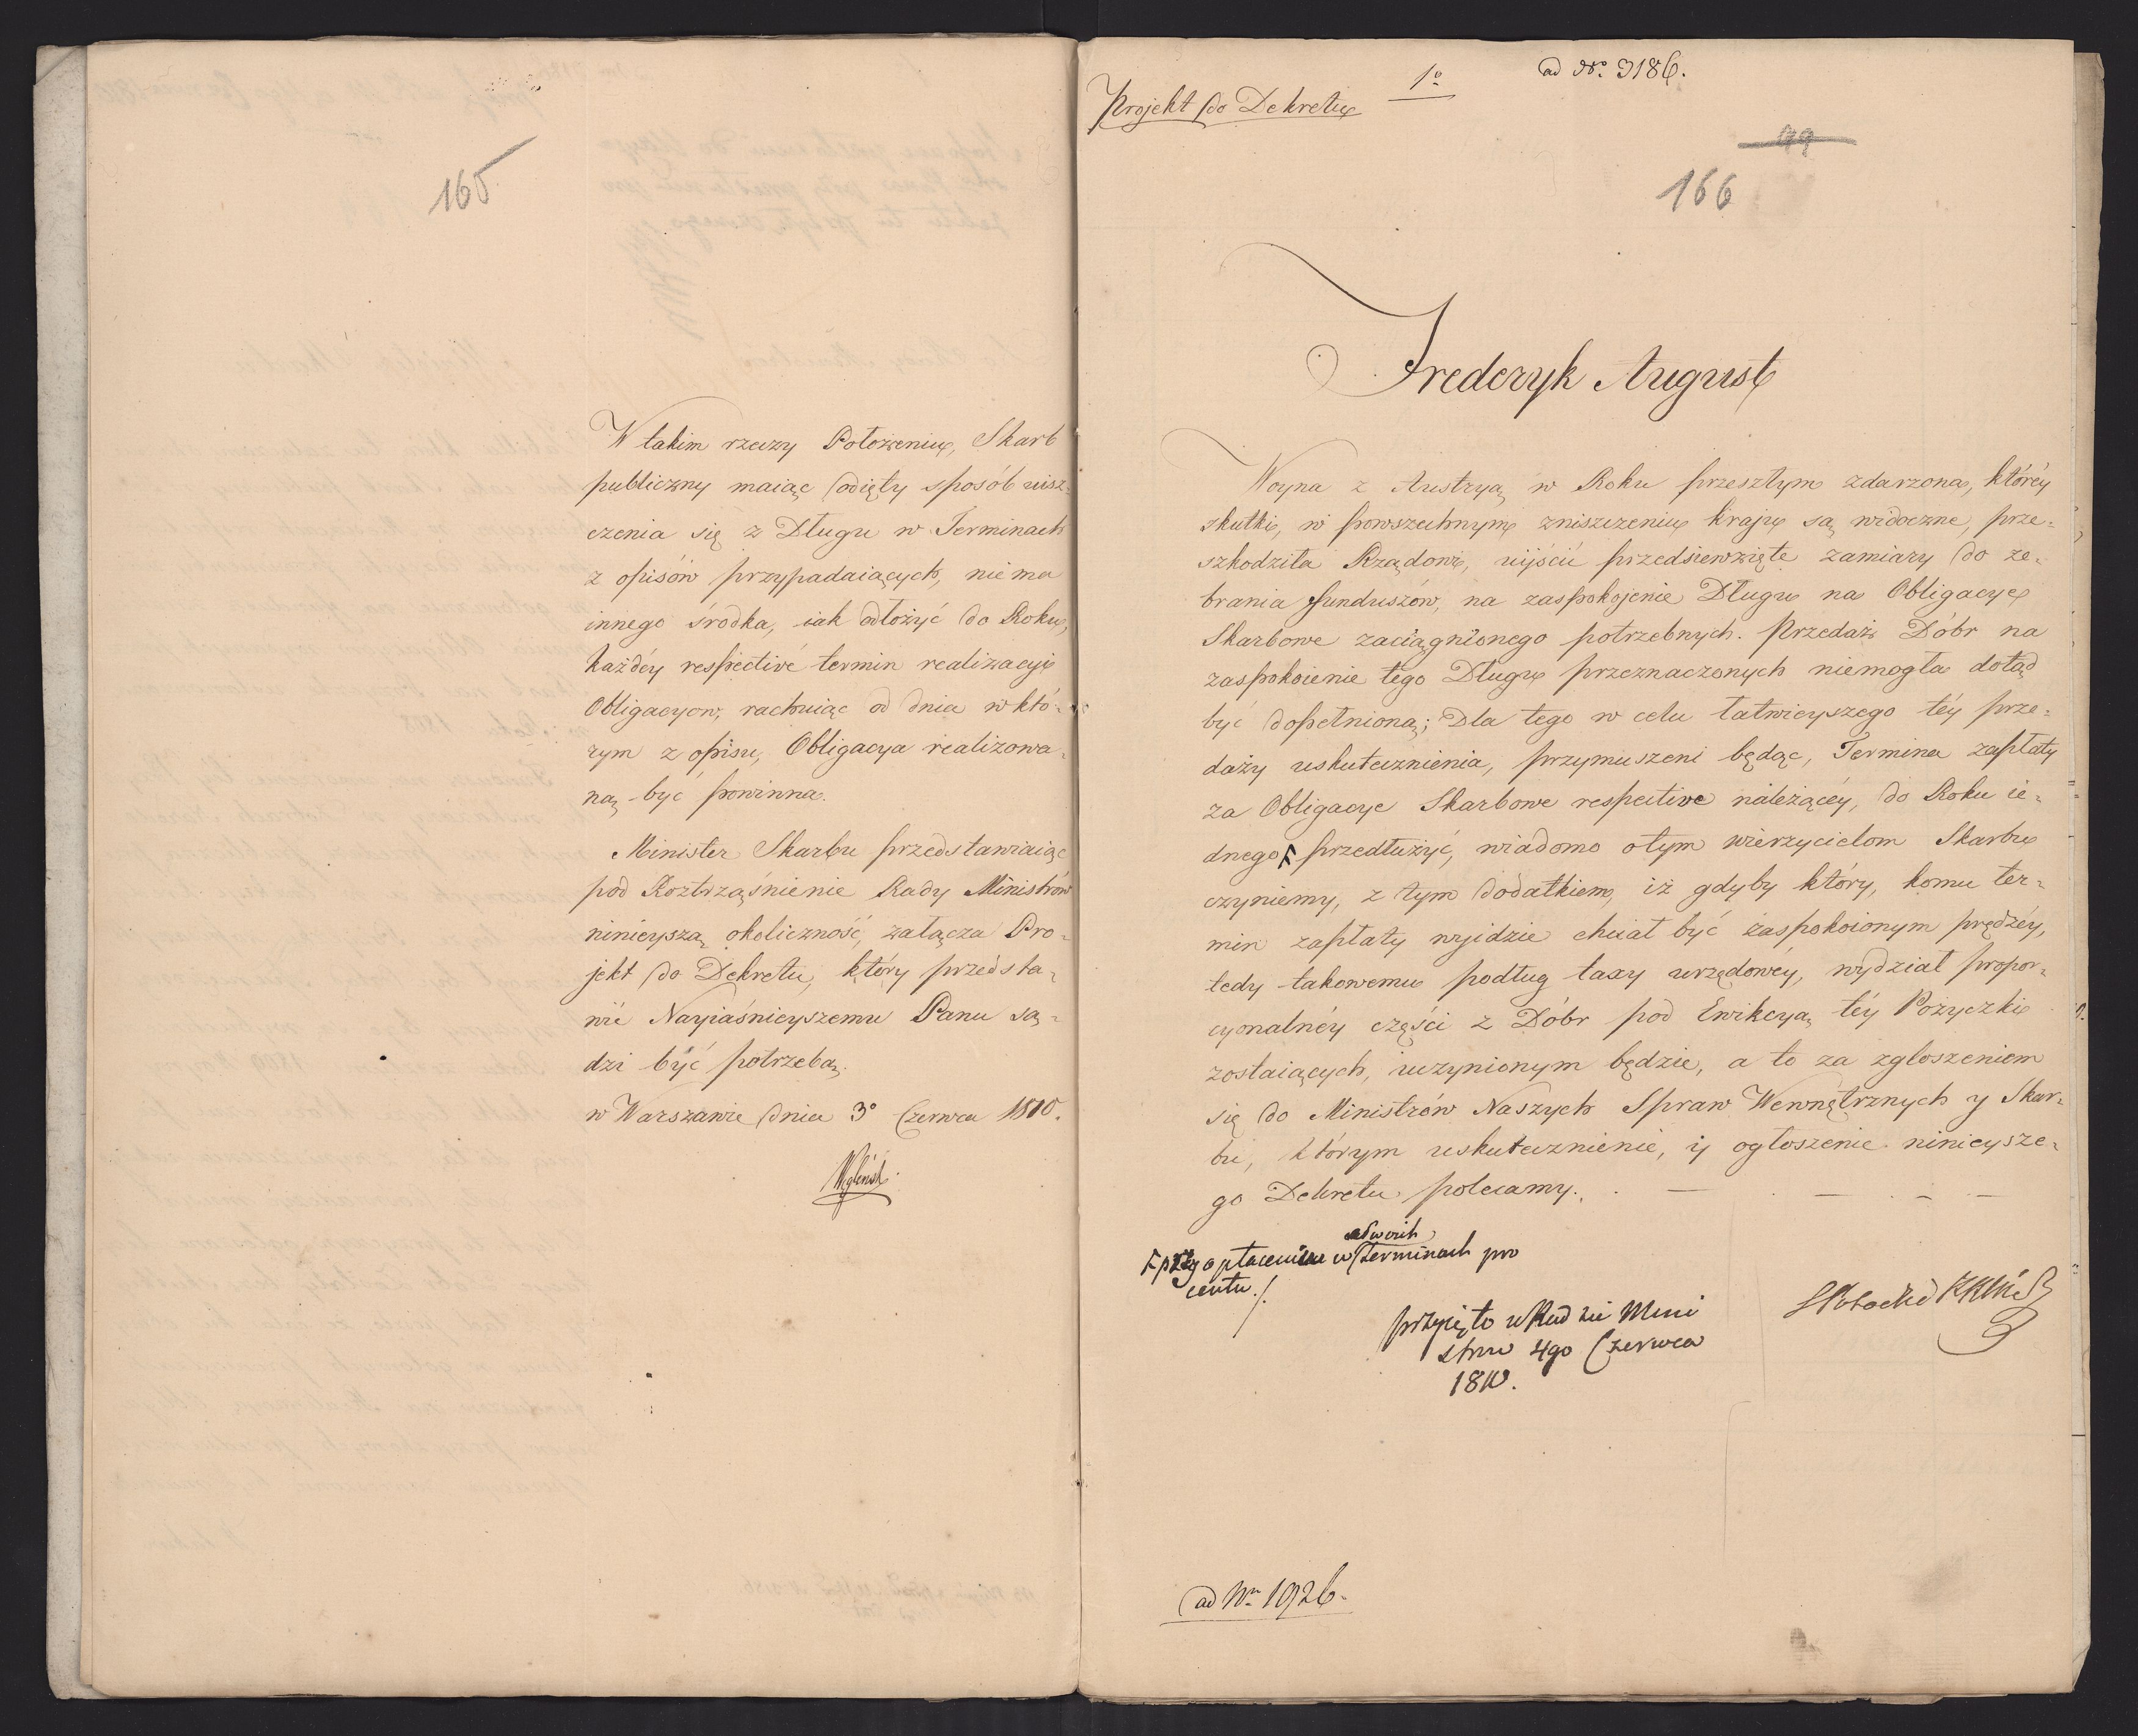 165
W takim rzeczy Położeniu, Skarb
publiczny maiąc odięty sposób uisz=
czenia się z Długu w Terminach
z opisów przypadaiących, nie ma
innego środka, iak odłożyć do Roku,
każdéy respective termin realizacyi
Obligacyow, rachuiąc od dnia w któ=
rym z opisu, Obligacya realizowa=
ną być powinna.
Minister Skarbu przedstawiaiąc
pod Roztrząśnienie Rady Ministrów
ninieyszą okoliczność, załącza Pro=
jekt do Dekretu, który przedsta=
wić Nayiaśnieyszemu Panu są=
dzi być potrzebą.
w Warszawie dnia 3° Czerwca 1810.
Węgleński
Projekt do Dekretu
1°
ad N° 3186.
99
166
Frederyk August
Woyna z Austryą w Roku przeszłym zdarzona, któréy
skutki, w powszechnym zniszczeniu kraju są widoczne, prze=
szkodziła Rządowi, uiścić przedsiewzięte zamiary do ze=
brania funduszów, na zaspokojenie Długu na Obligacye
Skarbowe zaciągnionego potrzebnych. Przedaż Dóbr na
zaspokoienie tego Długu przeznaczonych niemogła dotąd
być dopełnioną; Dla tego w celu łatwieyszego téy prze=
daży uskutecznienia, przymuszeni będąc, Termina zapłaty
za Obligacye Skarbowe respective należącéy, do Roku ie=
dnego F przedłużyć, wiadomo o tym wierzycielom Skarbu
czyniemy, z tym dodatkiem, iż gdyby który, komu ter=
min zapłaty wyidzie chciał być zaspokoionym prędzéy,
tedy takowemu podług taxy urzędowéy, wydział propor=
cyonalnéy części z Dóbr pod Ewikcyą téy Pożyczki
zostaiących, uczynionym będzie, a to za zgłoszeniem
się do Ministrów Naszych Spraw Wewnętrznych y Skar=
bu, którym uskutecznienie, y ogłoszenie ninieysze=
go Dekretu polecamy.
w swoich
F przy opłaceniu w terminach pro
centu ./.
przyięto w Radzie Mini
strow 4go Czerwca
1810.
S Potocki
ad Nr 1926.